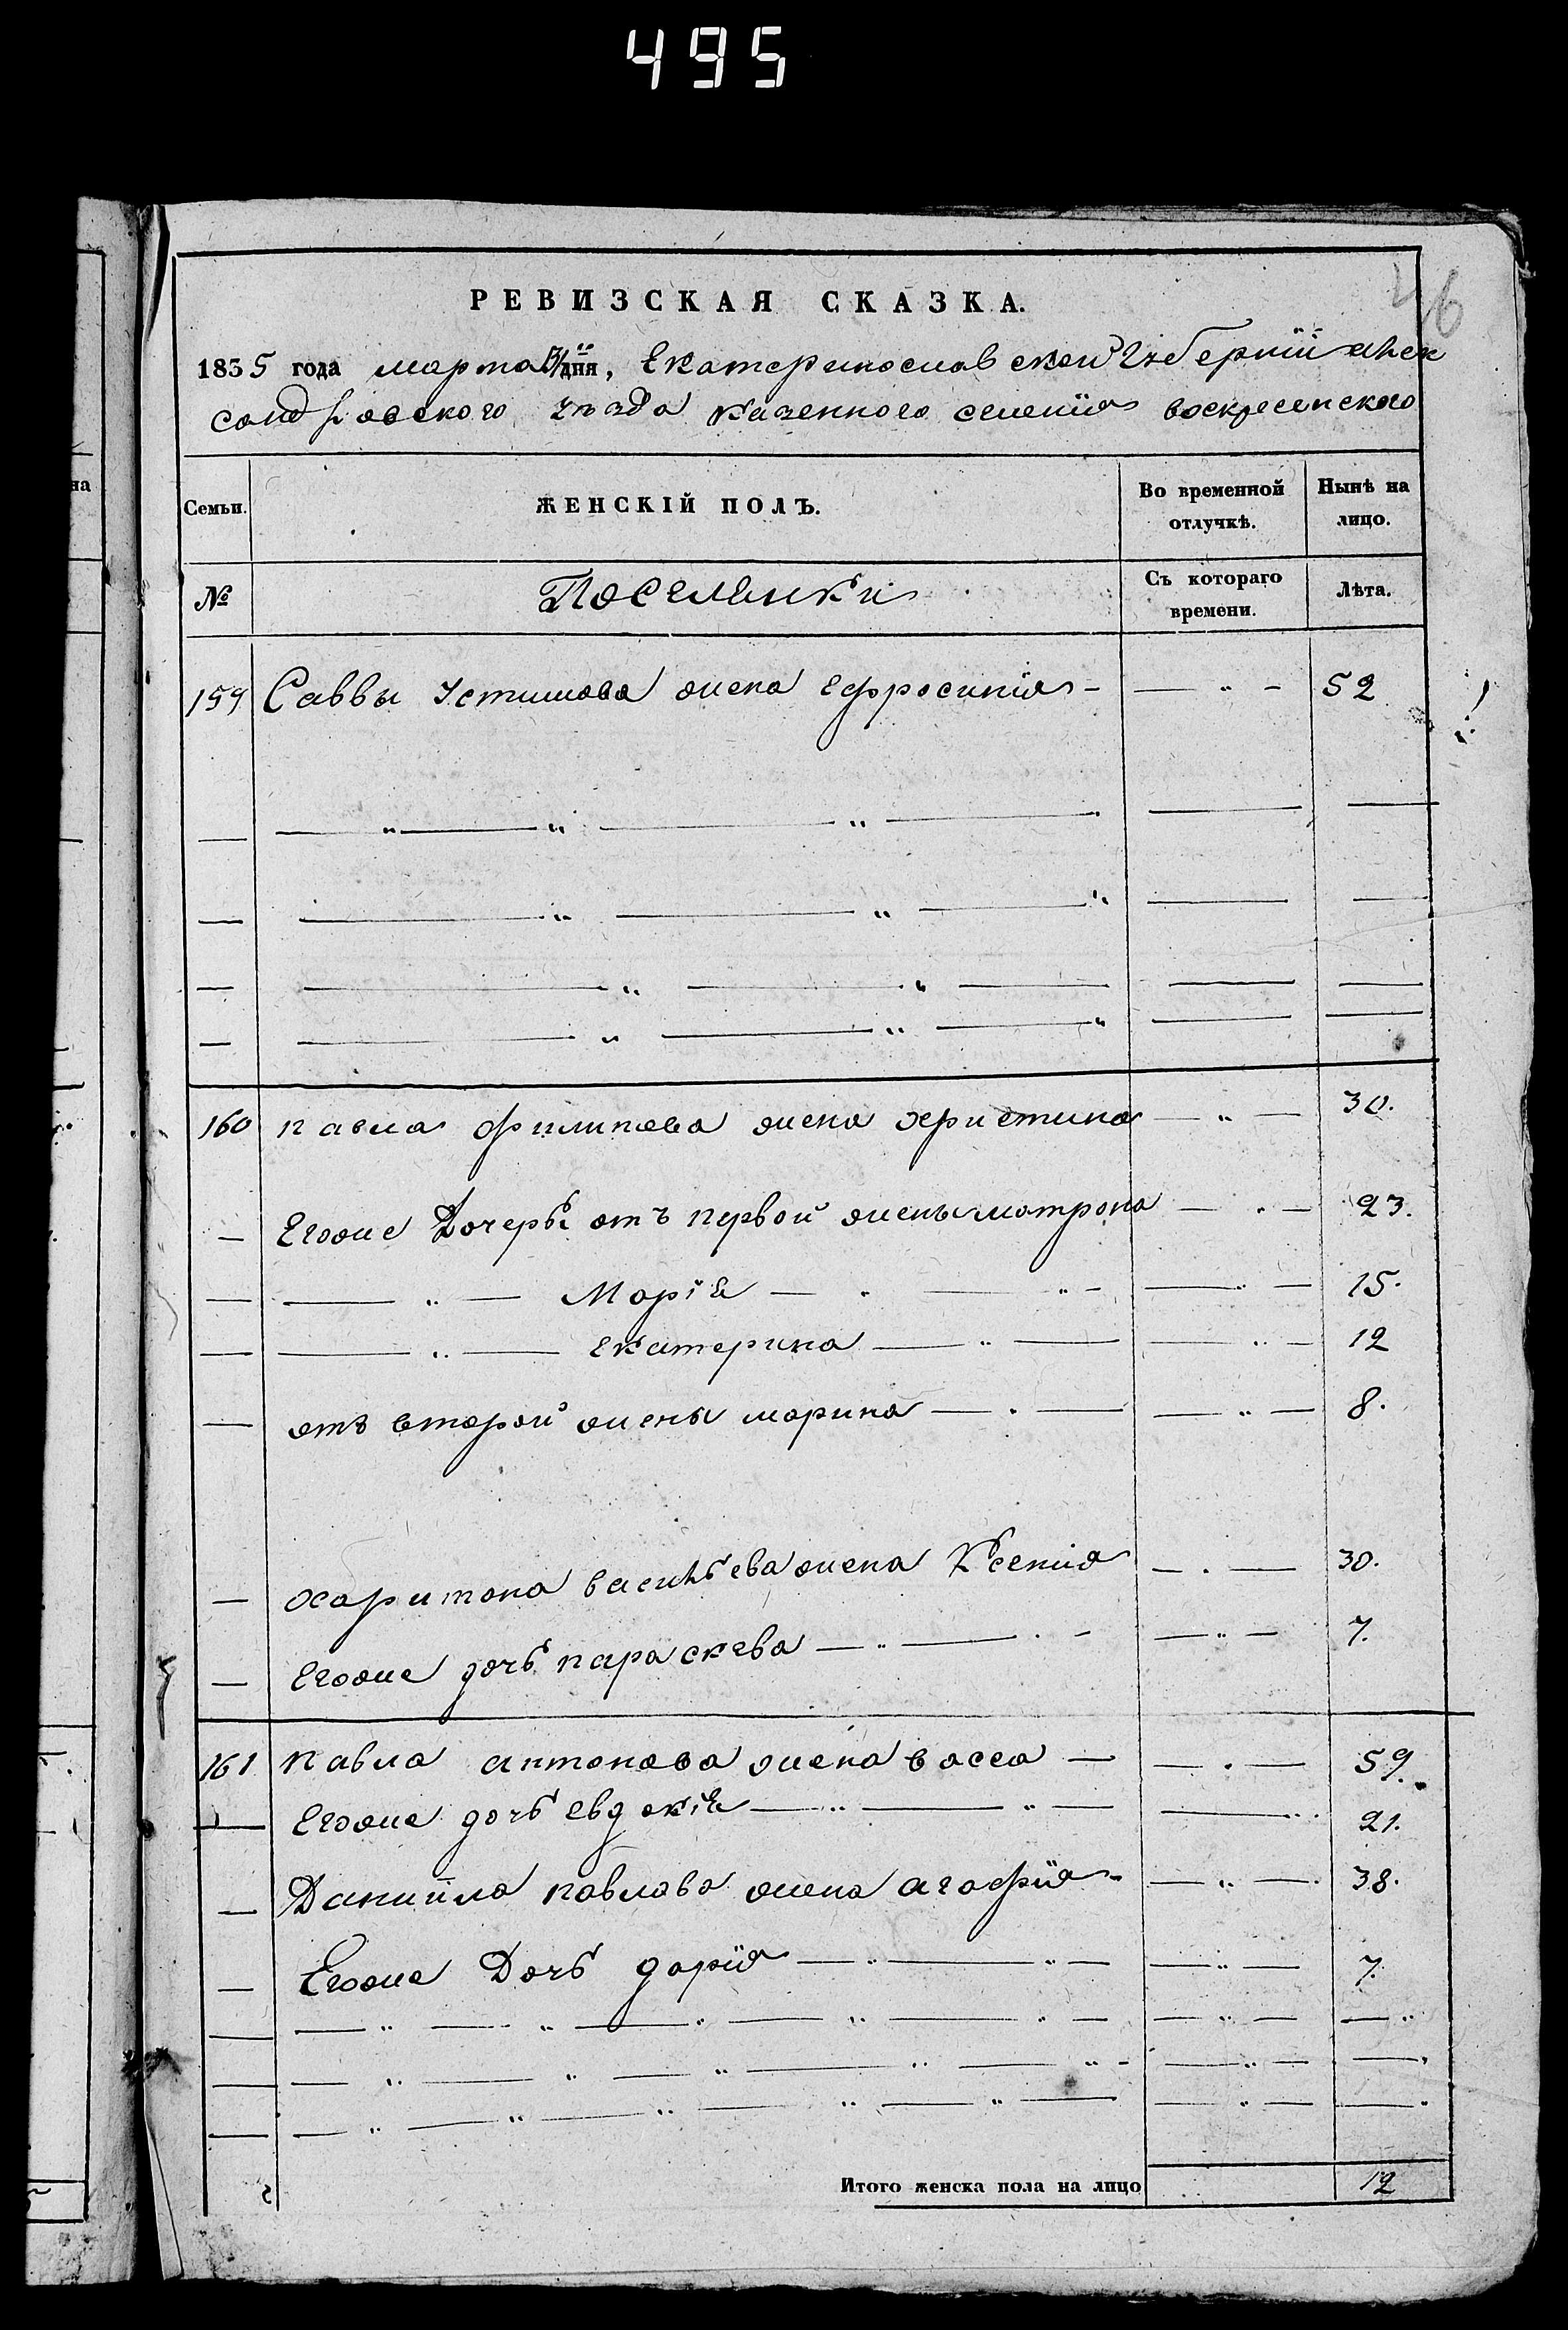 495
46
РЕВИЗСКАЯ СКАЗКА.
1835 года марта дня, Екатеринославской Губернии алек
сандровского уезда казенного селения воскресенского
Семьи. ЖЕНСКІЙ ПОЛЪ. Во временной отлучкѣ. Нынѣ на лицо.
№ Поселянки Съ котораго времени. Лѣта.
159 Саввы Устимова жена Ефросинія — „ — 52
160 павла филипова жена христина — „ — 30.
— Егоже Дочерь отъ первой жены матрона — „ — 23.
— — „ — Марія — „ — 15.
— — „ — екатерина — „ — 12
— отъ второй жены марина — „ — 8.
— харитона васильева жена Ксенія — „ — 30.
— Егоже дочь параскева — „ — 7.
161 павла антонова жена васса — „ — 59.
— Егоже дочь евдокія — „ — 21.
— Даниила павлова жена агафія — „ — 38.
— Егоже Дочь дарія — „ — 7.
Итого женска пола на лицо 12